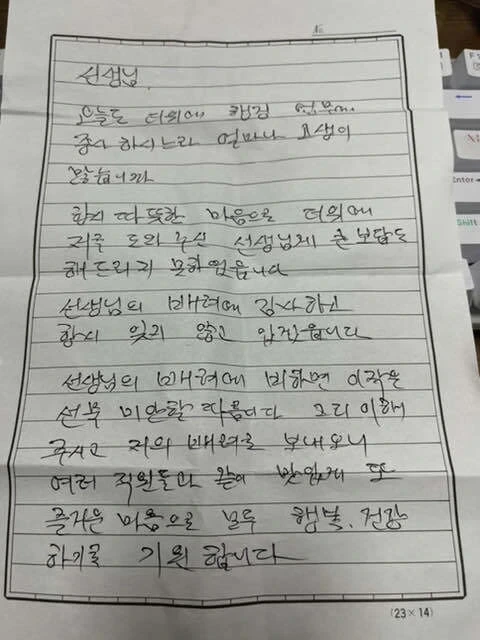 No
선생님.
오늘도 더위에 행정 업무에
종사 하시느라 얼마나 고생이
많습니까
항시 따뜻한 마음으로 더위에
저를 도와 주신 선생님께 큰 보답도
해 드리지 못하였읍니다
선생님의 배려에 감사하고
항시 잊지 않고 있겠읍니다
선생님의 배려에 비하면 이 작은
선물 미안할 따름이다 그리 이해
주시고 저의 배려를 보내오니
여러 직원들과 같이 맛있게 또
즐거운 마음으로 모두 행복, 건강
하기를 기원 합니다
(23 × 14)
Enter
Shift